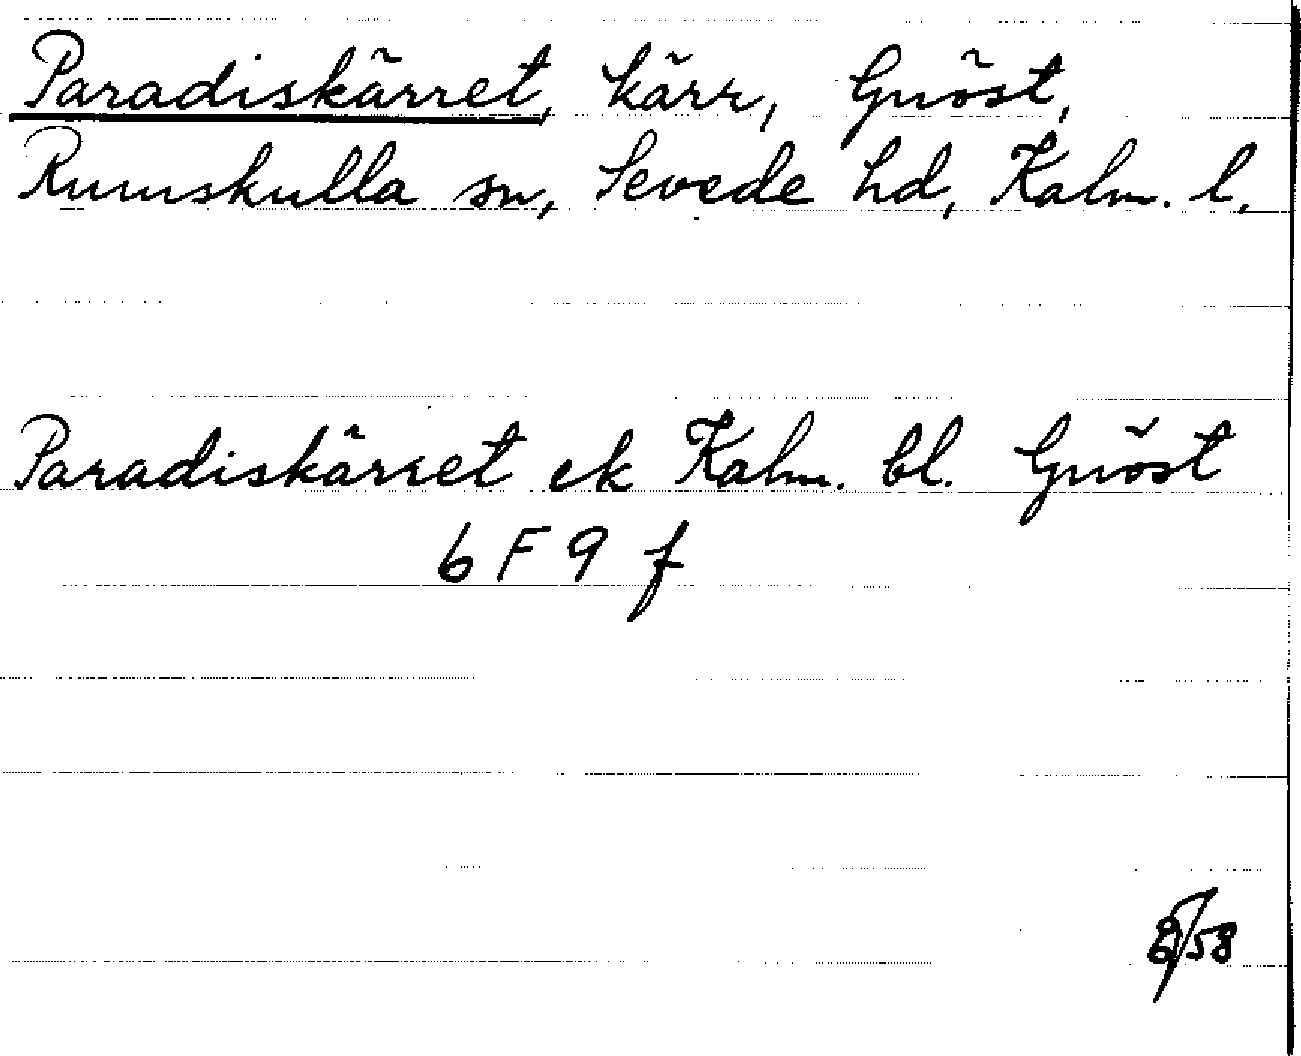 Paradiskärret, kärr, Gnöst,
Rumskulla sn, Sevede hd, Kalm. l.
Paradiskärret ek Kalm. bl. Gnöst
6 F 9 f